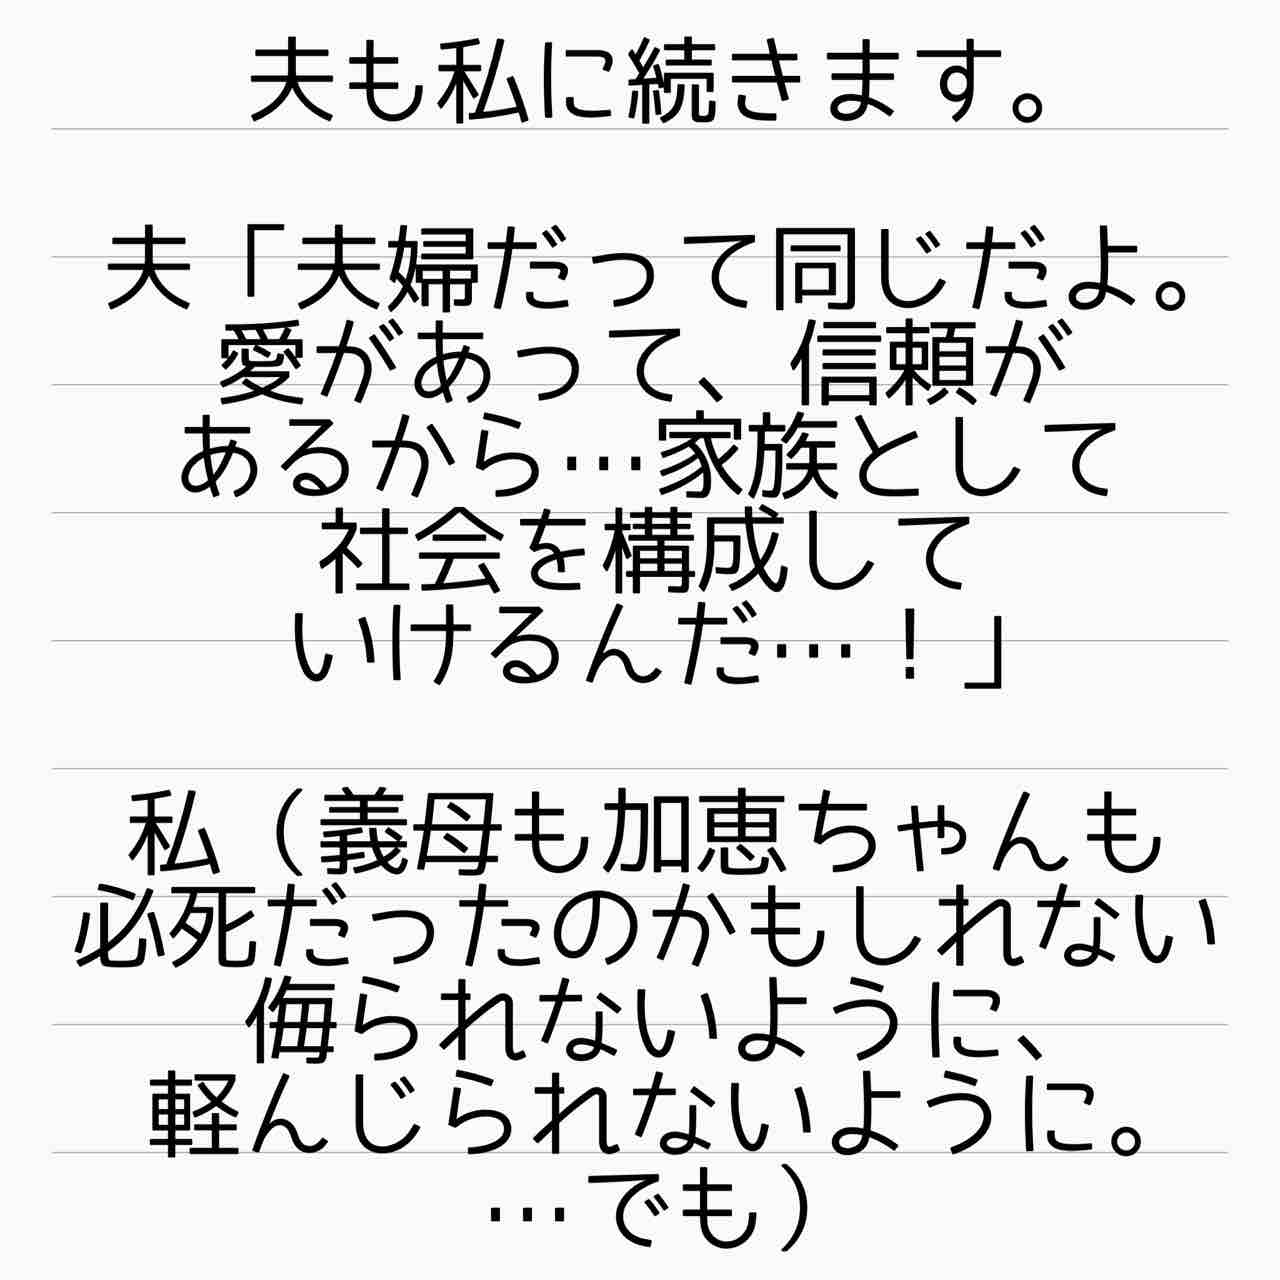 夫も私に続きます。
夫「夫婦だって同じだよ。
愛があって、信頼が
あるから…家族として
社会を構成して
いけるんだ…！」
私（義母も加恵ちゃんも
必死だったのかもしれない
侮られないように、
軽んじられないように。
…でも）